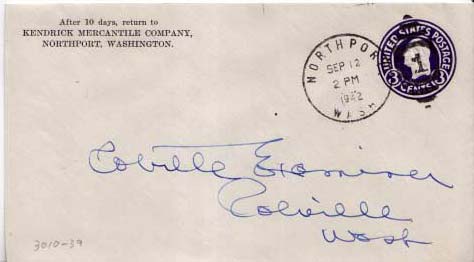 After 10 days, return to
KENDRICK MERCANTILE COMPANY,
NORTHPORT, WASHINGTON.
NORTHPOR
SEP 12
2 PM
1942
WASH
UNITED STATES POSTAGE
1
3 CENTS 3
Colville Examiner
Colville
Wash
3010-39